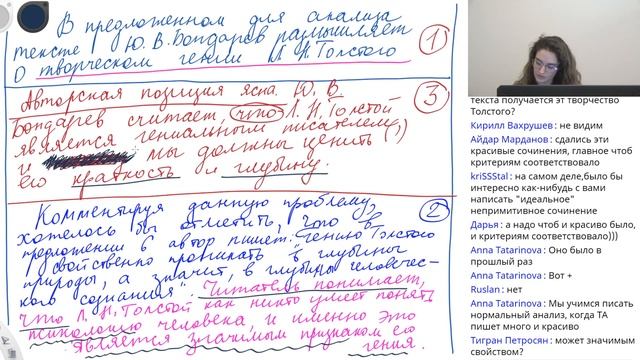 В предложенном для анализа
тексте Ю.В.Бондарев размышляет
о творческом гении Л.Н.Толстого
1
Авторская позиция ясна. Ю. В.
Бондарев считает, что Л.Н.Толстой
является гениальным писателем,
и мы должны ценить (,)
его краткость и глубину.
3
Комментируя данную проблему,
хотелось бы отметить, что в
предложении 6 автор пишет: "гению Толстого
свойственно проникать в глубины
природы, а значит, в глубины человечес-
кого сознания". Читатель понимает,
что Л.Н.Толстой как никто умеет понять
психологию человека, и именно это
является значимым признаком его
гения.
2
текста получается эт творчество
Толстого?
Кирилл Вахрушев: не видим
Айдар Марданов: сдались эти
красивые сочинения, главное чтоб
критериям соответствовало
kriSSStal: на самом деле,было бы
интересно как-нибудь с вами
написать "идеальное"
непримитивное сочинение
Дарья: а надо чтоб и красиво было,
и критериям соответствовало)))
Anna Tatarinova: Оно было в
прошлый раз
Anna Tatarinova: Вот +
Ruslan: нет
Anna Tatarinova: Мы учимся писать
нормальный анализ, когда ТА
пишет много и красиво
Тигран Петросян: может значимым
свойством?